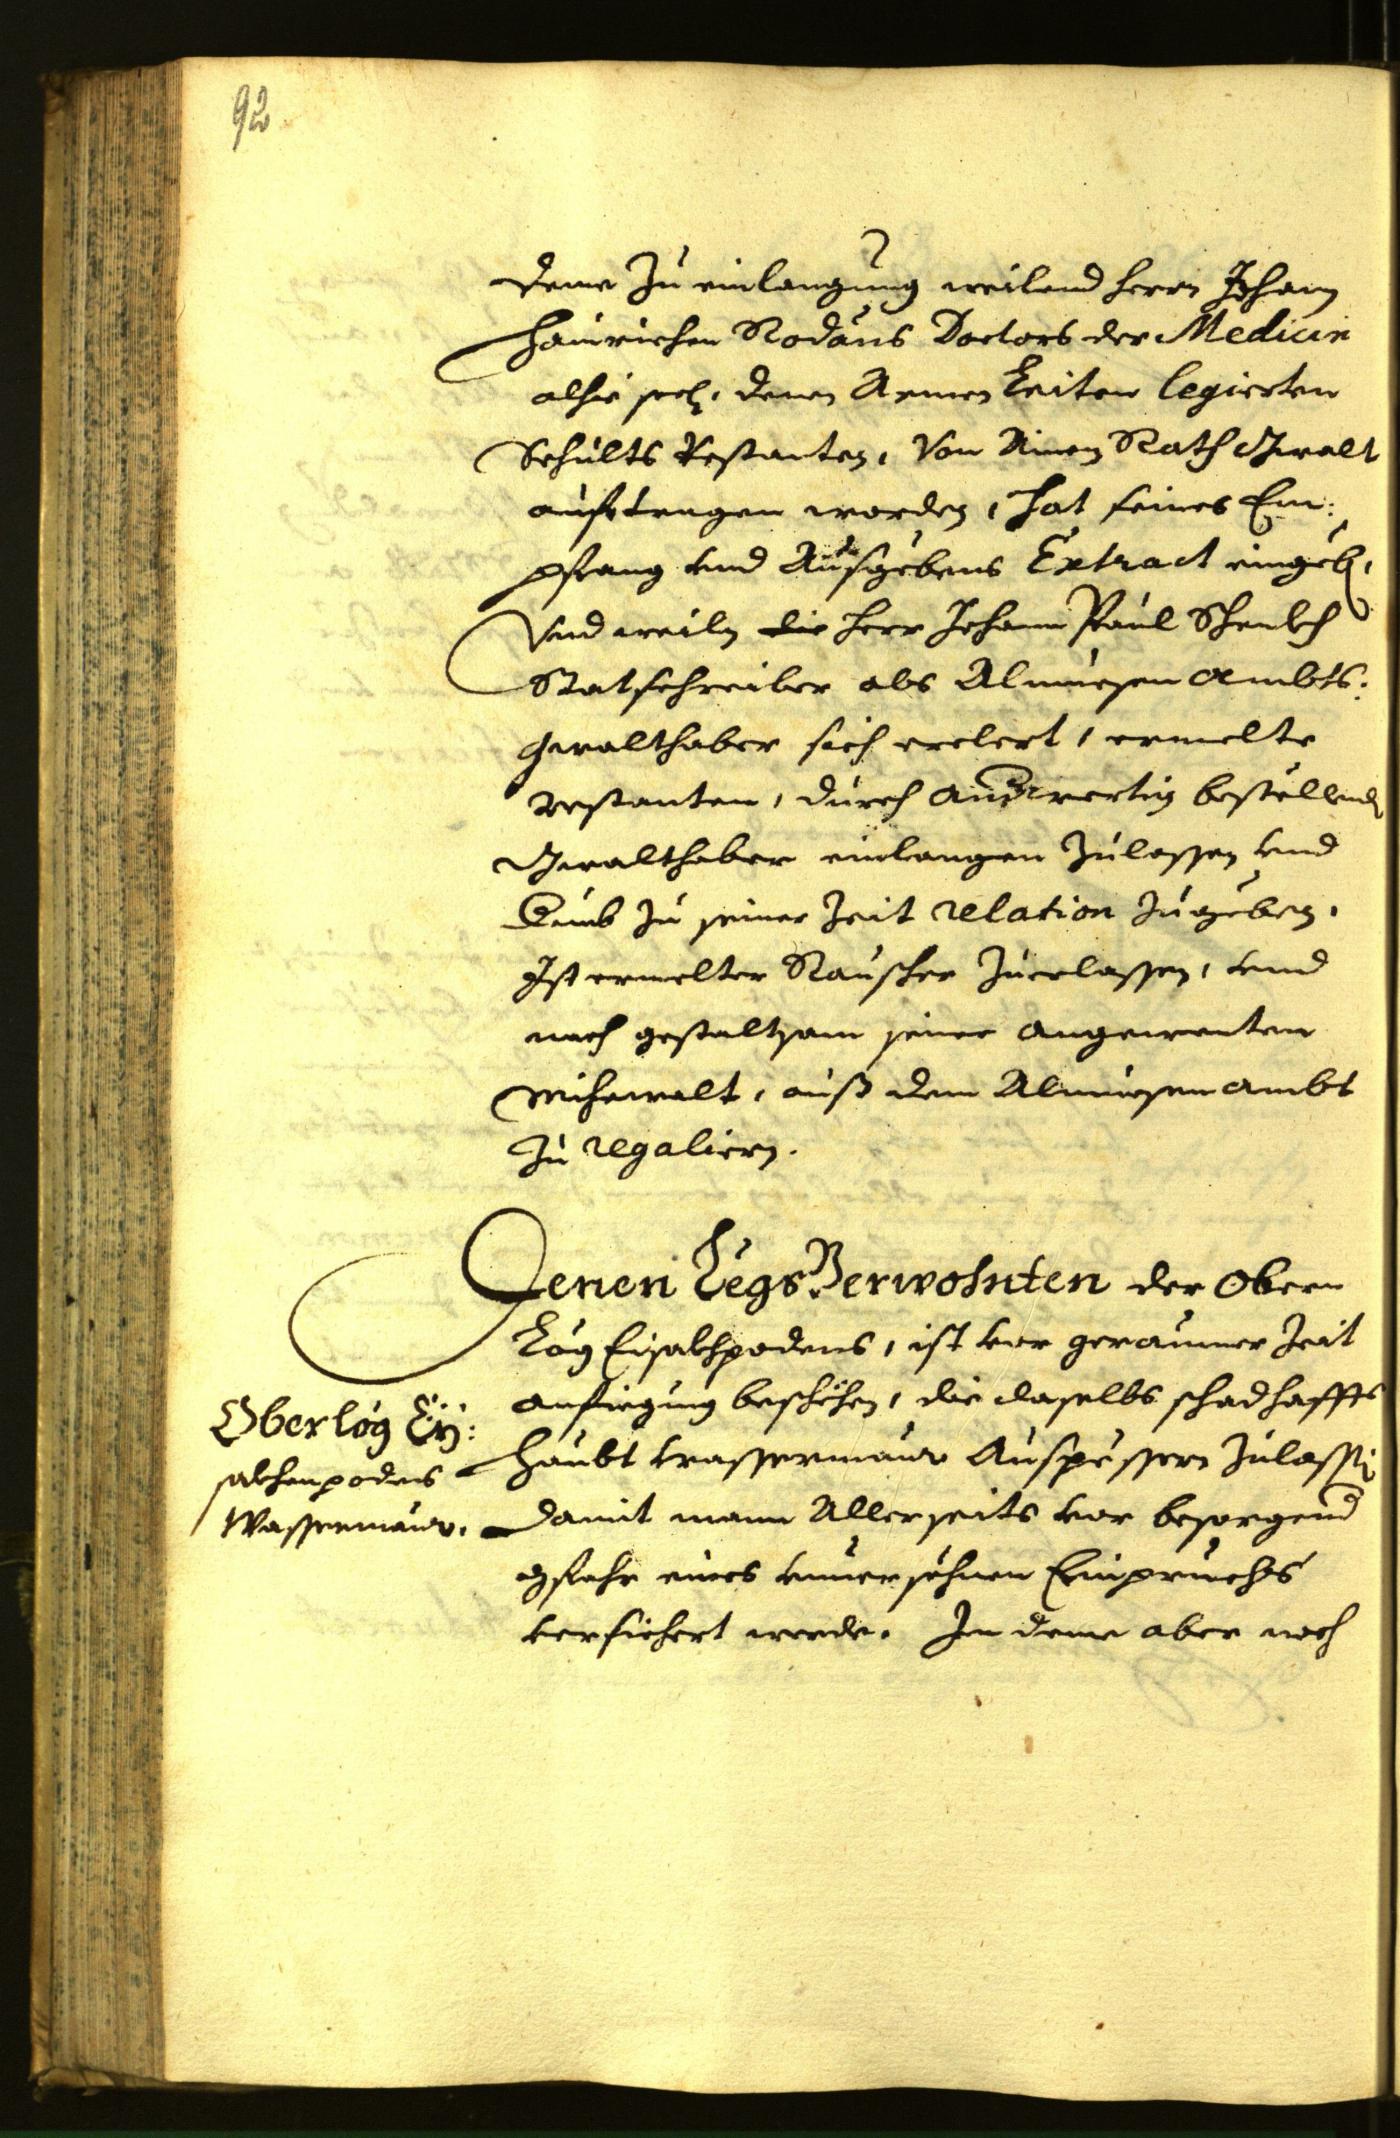 92
deme zu einlangung weilend herrn Johann
Hainrichen Rodaüs Doctors der Medicin
alhie seel. denen Armen Leiten legierten
Schults Restanten, Von Ainem Rath Gwalt
aufetragen worden, hat seines Em:
pfang vnd Ausgebens Extract eingeb.
Vnd weiln die herr Johann Paul Schenkh
Statschreiber als Almuesen Ambts:
gewalthaber sich erclert, ermelte
restanten, durch Ausswertig bestellende
Gewalthaber einlangen zulassen vnd
Darumb zu seiner Zeit relation zugeben.
Ist ermelter Rauscher zuerlassen, vnd
nach gestaltsam seiner angewenten
Mihewalt, auß dem Almuesen ambt
zu regaliern.
Denen LegsVerwohnten der Obern
Lög Eisakhpodens, ist vor geraumer Zeit
anfiegung beschehen, die daselbs schadhaffte
haubt wassermaur Auspessern zulassen
damit mann Allerseits vor besorgend
gfahr eines vnuersehnen Einpruchs
versichert werde. In deme aber noch
Oberlög Eÿ:
sakhenpodens
Wassermaur.